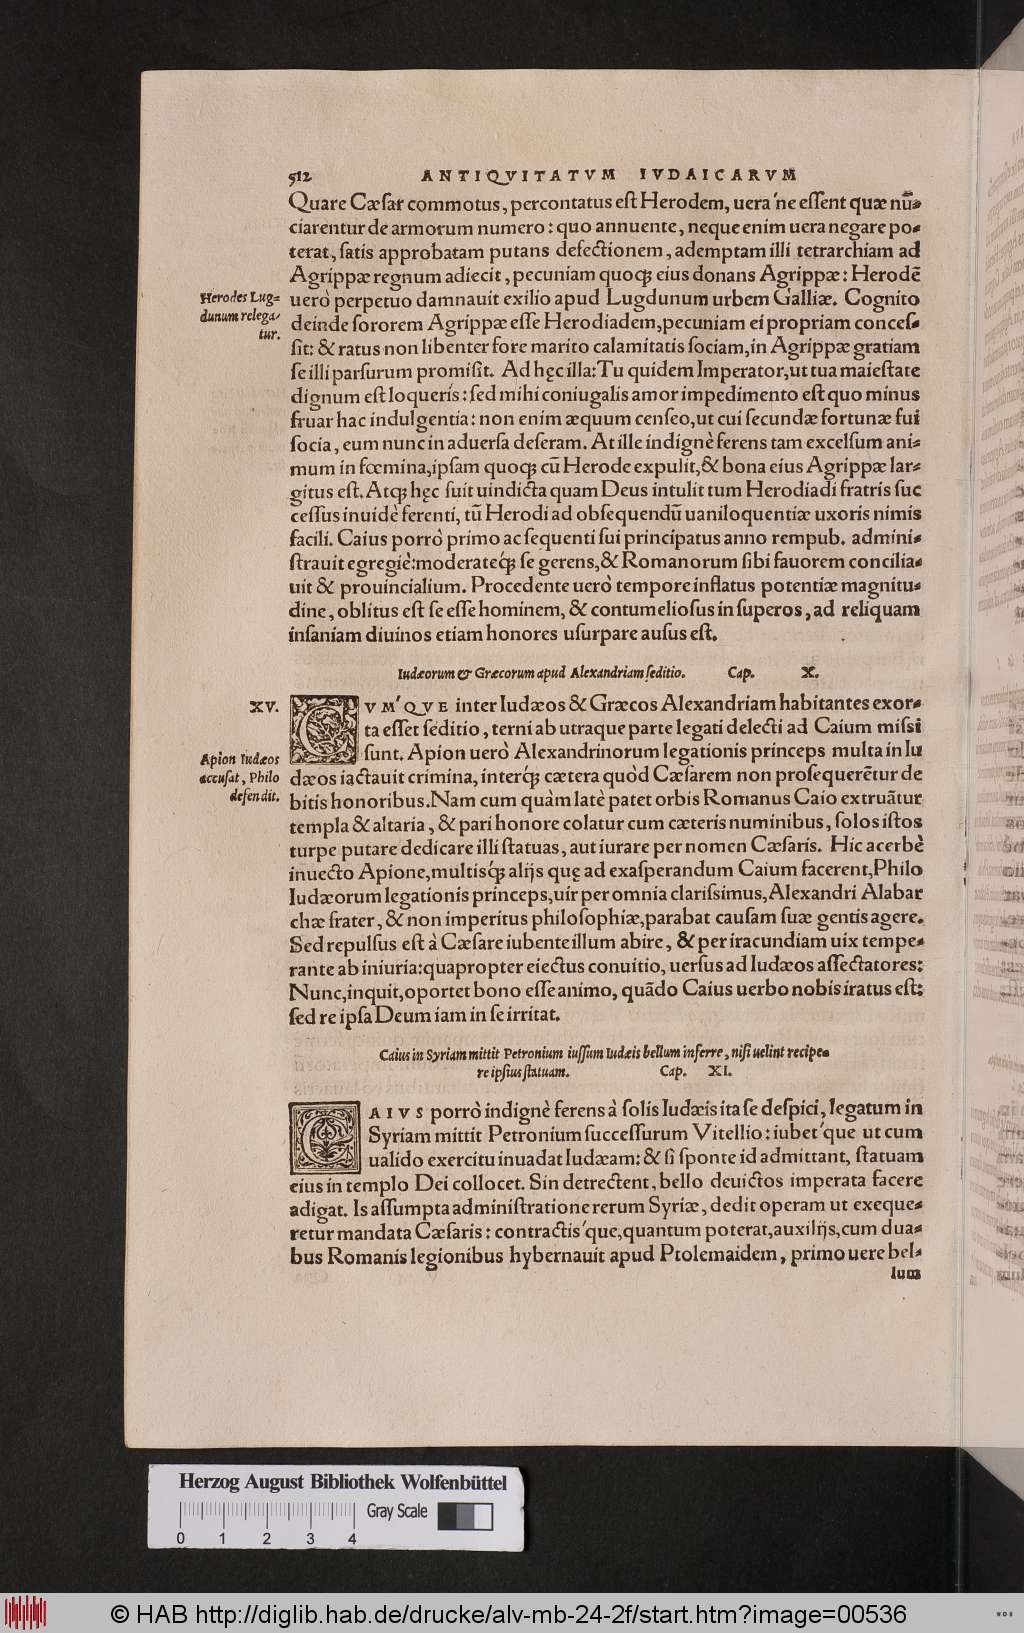 512 ANTIQVITATVM IVDAICARVM
Quare Cæsar commotus, percontatus est Herodem, uera'ne essent quæ nū-
ciarentur de armorum numero: quo annuente, neque enim uera negare po-
terat, satis approbatam putans defectionem, ademptam illi tetrarchiam ad
Agrippæ regnum adiecit, pecuniam quoq; eius donans Agrippæ: Herodē
uerò perpetuo damnauit exilio apud Lugdunum urbem Galliæ. Cognito
deinde sororem Agrippæ esse Herodiadem, pecuniam ei propriam conces-
sit: & ratus non libenter fore marito calamitatis sociam, in Agrippæ gratiam
se illi parsurum promisit. Ad hęc illa: Tu quidem Imperator, ut tua maiestate
dignum est loqueris: sed mihi coniugalis amor impedimento est quo minus
fruar hac indulgentia: non enim æquum censeo, ut cui secundæ fortunæ fui
socia, eum nunc in aduersa deseram. At ille indignè ferens tam excelsum ani-
mum in fœmina, ipsam quoq; cū Herode expulit, & bona eius Agrippæ lar-
gitus est. Atq; hęc fuit uindicta quam Deus intulit tum Herodiadi fratris suc
cessus inuidè ferenti, tū Herodi ad obsequendū uaniloquentiæ uxoris nimis
facili. Caius porrò primo ac sequenti sui principatus anno rempub. admini-
strauit egregiè: moderateq́; se gerens, & Romanorum sibi fauorem concilia-
uit & prouincialium. Procedente uerò tempore inflatus potentiæ magnitu-
dine, oblitus est se esse hominem, & contumeliosus in superos, ad reliquam
insaniam diuinos etiam honores usurpare ausus est.
Herodes Lug=
dunum relega/
tur.
Iudæorum & Græcorum apud Alexandriam seditio. Cap. X.
XV.
CVM'QVE inter Iudæos & Græcos Alexandriam habitantes exor-
ta esset seditio, terni ab utraque parte legati delecti ad Caium missi
sunt. Apion uerò Alexandrinorum legationis princeps multa in Iu
dæos iactauit crimina, interq́; cætera quòd Cæsarem non prosequerētur de
bitis honoribus. Nam cum quàm latè patet orbis Romanus Caio extruātur
templa & altaria, & pari honore colatur cum cæteris numinibus, solos istos
turpe putare dedicare illi statuas, aut iurare per nomen Cæsaris. Hic acerbè
inuecto Apione, multisq́; alijs quę ad exasperandum Caium facerent, Philo
Iudæorum legationis princeps, uir per omnia clarissimus, Alexandri Alabar
chæ frater, & non imperitus philosophiæ, parabat causam suæ gentis agere.
Sed repulsus est à Cæsare iubente illum abire, & per iracundiam uix tempe-
rante ab iniuria: quapropter eiectus conuitio, uersus ad Iudæos assectatores:
Nunc, inquit, oportet bono esse animo, quādo Caius uerbo nobis iratus est:
sed re ipsa Deum iam in se irritat.
Apion Iudæos
accusat, Philo
defendit.
Caius in Syriam mittit Petronium iussum Iudæis bellum inferre, nisi uelint recipe=
re ipsius statuam. Cap. XI.
CAIVS porrò indignè ferens à solis Iudæis ita se despici, legatum in
Syriam mittit Petronium successurum Vitellio: iubet'que ut cum
ualido exercitu inuadat Iudæam: & si sponte id admittant, statuam
eius in templo Dei collocet. Sin detrectent, bello deuictos imperata facere
adigat. Is assumpta administratione rerum Syriæ, dedit operam ut exeque-
retur mandata Cæsaris: contractis'que, quantum poterat, auxilijs, cum dua-
bus Romanis legionibus hybernauit apud Ptolemaidem, primo uere bel-
lum
Herzog August Bibliothek Wolfenbüttel
Gray Scale
0 1 2 3 4
© HAB http://diglib.hab.de/drucke/alv-mb-24-2f/start.htm?image=00536